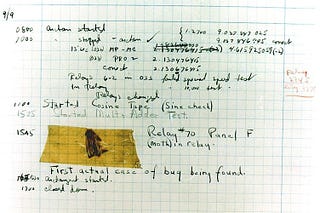 9/9
0800 Antan started
1000 " stopped - antan ✓ { 1.2700 9.037 847 025
9.037 846 995 correct
13"uc (032) MP-MC 2.130476415 4.615925059(-2)
(033) PRO 2 2.130476415
correct 2.130676415
Relays 6-2 in 033 failed special speed test
in Relay " test.
Relays changed
1100 Started Cosine Tape (Sine check)
1525 Started Multi Adder Test.
1545 Relay #70 Panel F
(moth) in relay.
First actual case of bug being found.
antangent started.
1700 closed down.